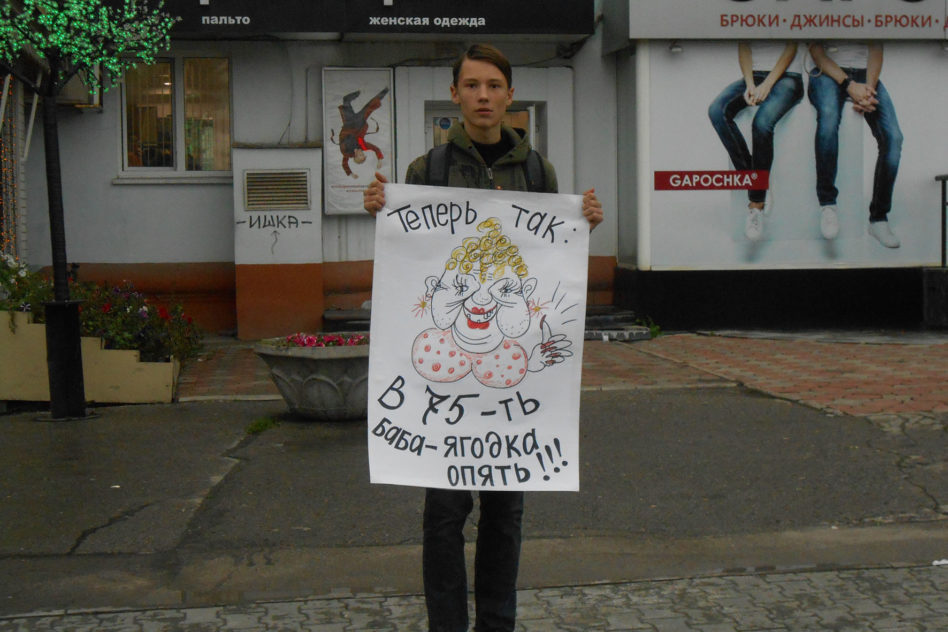 пальто
женская одежда
БРЮКИ · ДЖИНСЫ · БРЮКИ ·
GAPOCHKA®
-ИШКА-
Теперь так:
В 75-ть
баба-ягодка
опять!!!